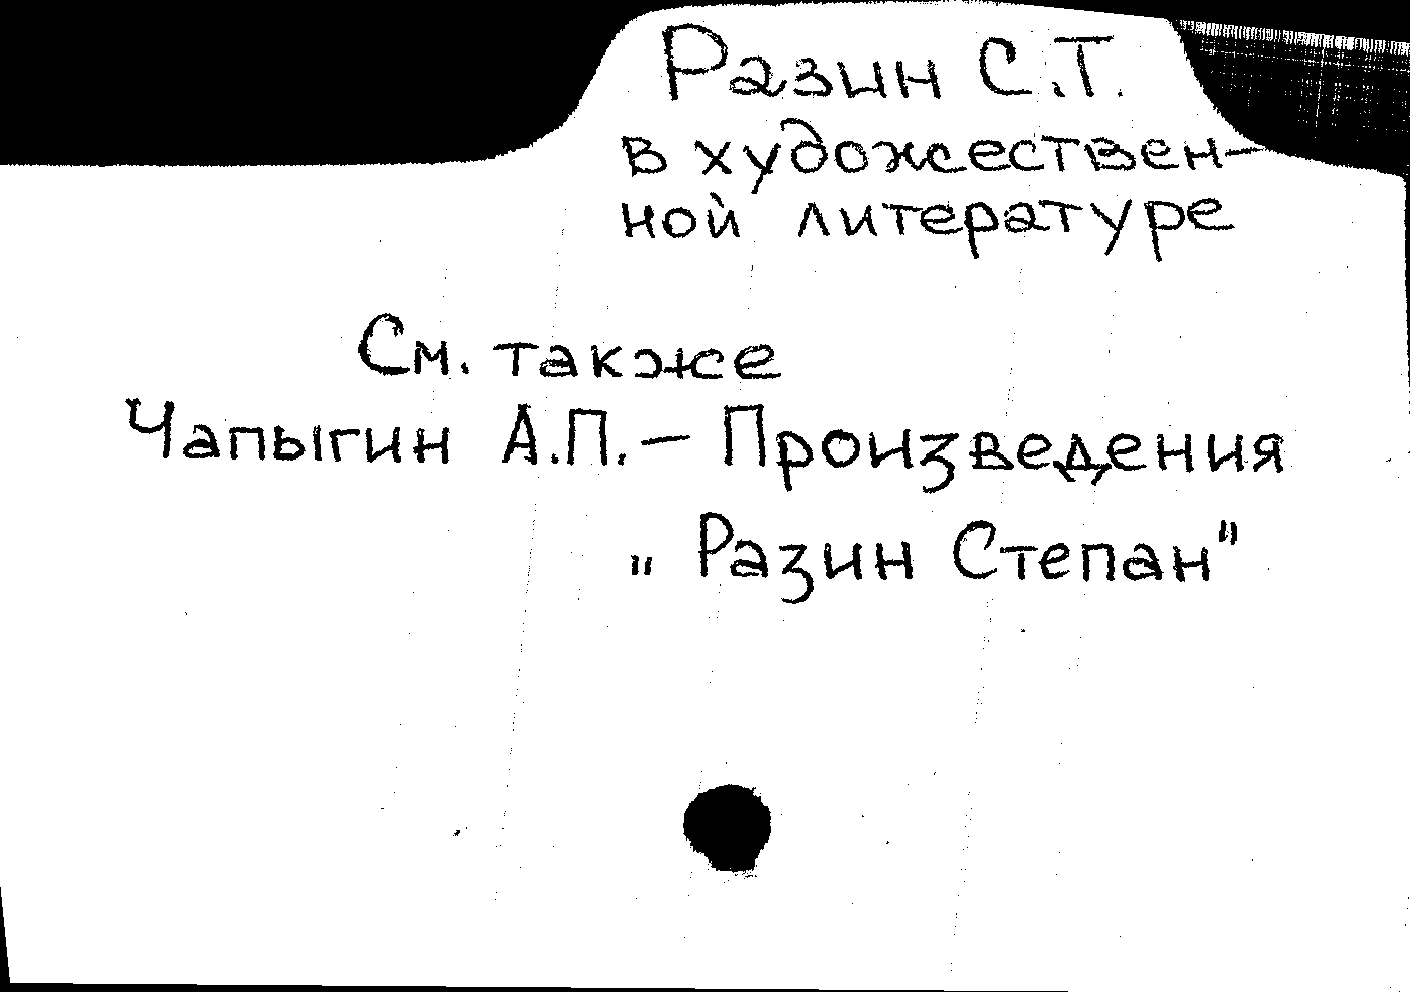 Разин С.Т.
в художествен-
ной литературе
См. также
Чапыгин А.П. – Произведения
„Разин Степан"